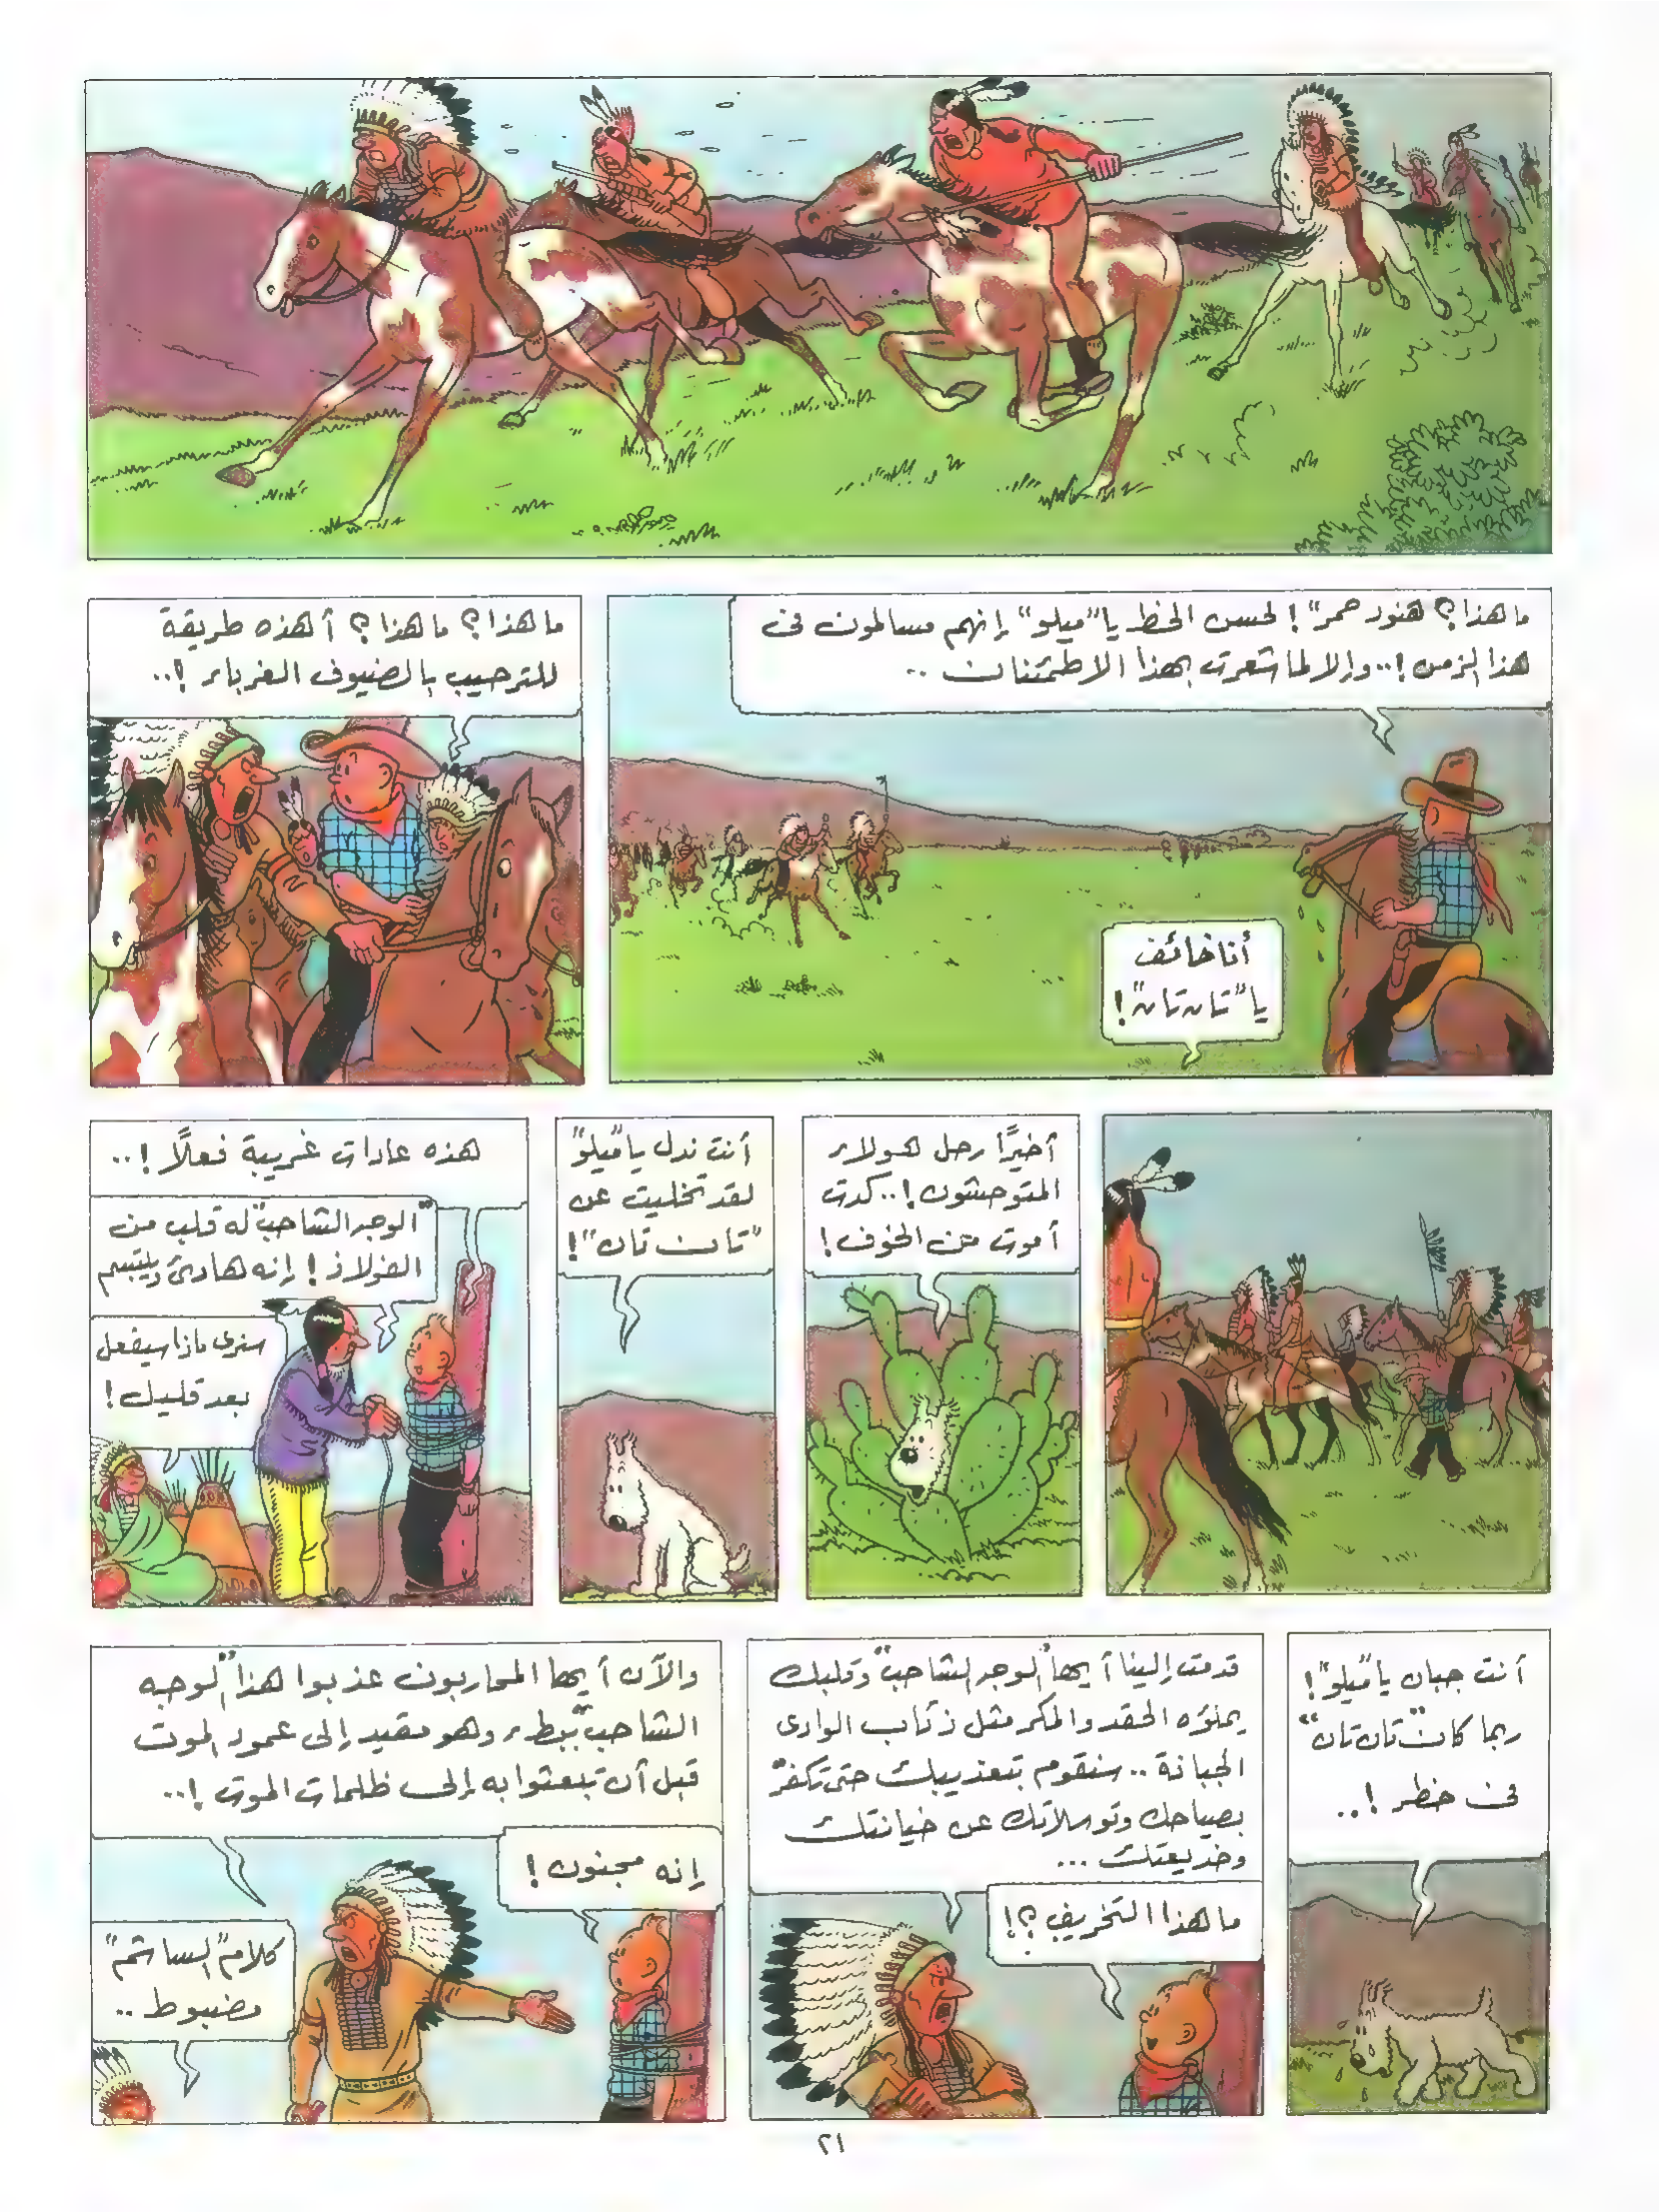 ما هذا؟ هنود حمر"! لحسن الحظ يا "ميلو" إنهم مسالمون فى
هذا الزمن!.. وإلا لما شعرت بهذا الاطمئنان ..
أنا خائف
يا "تان تان"!
ما هذا؟ ما هذا؟ أهذه طريقة
للترحيب بالضيوف الغرباء !..
أخيرًا رحل هؤلاء
المتوحشون!.. كدت
أموت من الخوف!
أنت ندل يا "ميلو"
لقد تخليت عن
"تان تان"!
هذه عادات غريبة فعلاً !..
"الوجه الشاحب" له قلب من
الفولاذ! إنه هادئ ويبتسم
سنرى ماذا سيفعل
بعد قليل!
أنت جبان يا "ميلو"!
ربما كان "تان تان"
فى خطر !..
قدمت إلينا أيها "الوجه الشاحب" وقلبك
يملؤه الحقد والمكر مثل ذئاب الوادى
الجبانة .. سنقوم بتعذيبك حتى تكفّر
بصياحك وتوسلاتك عن خيانتك
وخديعتك ...
ما هذا التخريف؟!
والآن أيها المحاربون عذبوا هذا "الوجه
الشاحب" ببطء وهو مقيد إلى عمود الموت
قبل أن تبعثوا به إلى ظلمات الموت !..
إنه مجنون!
كلام "الساشم"
مضبوط ..
٢١